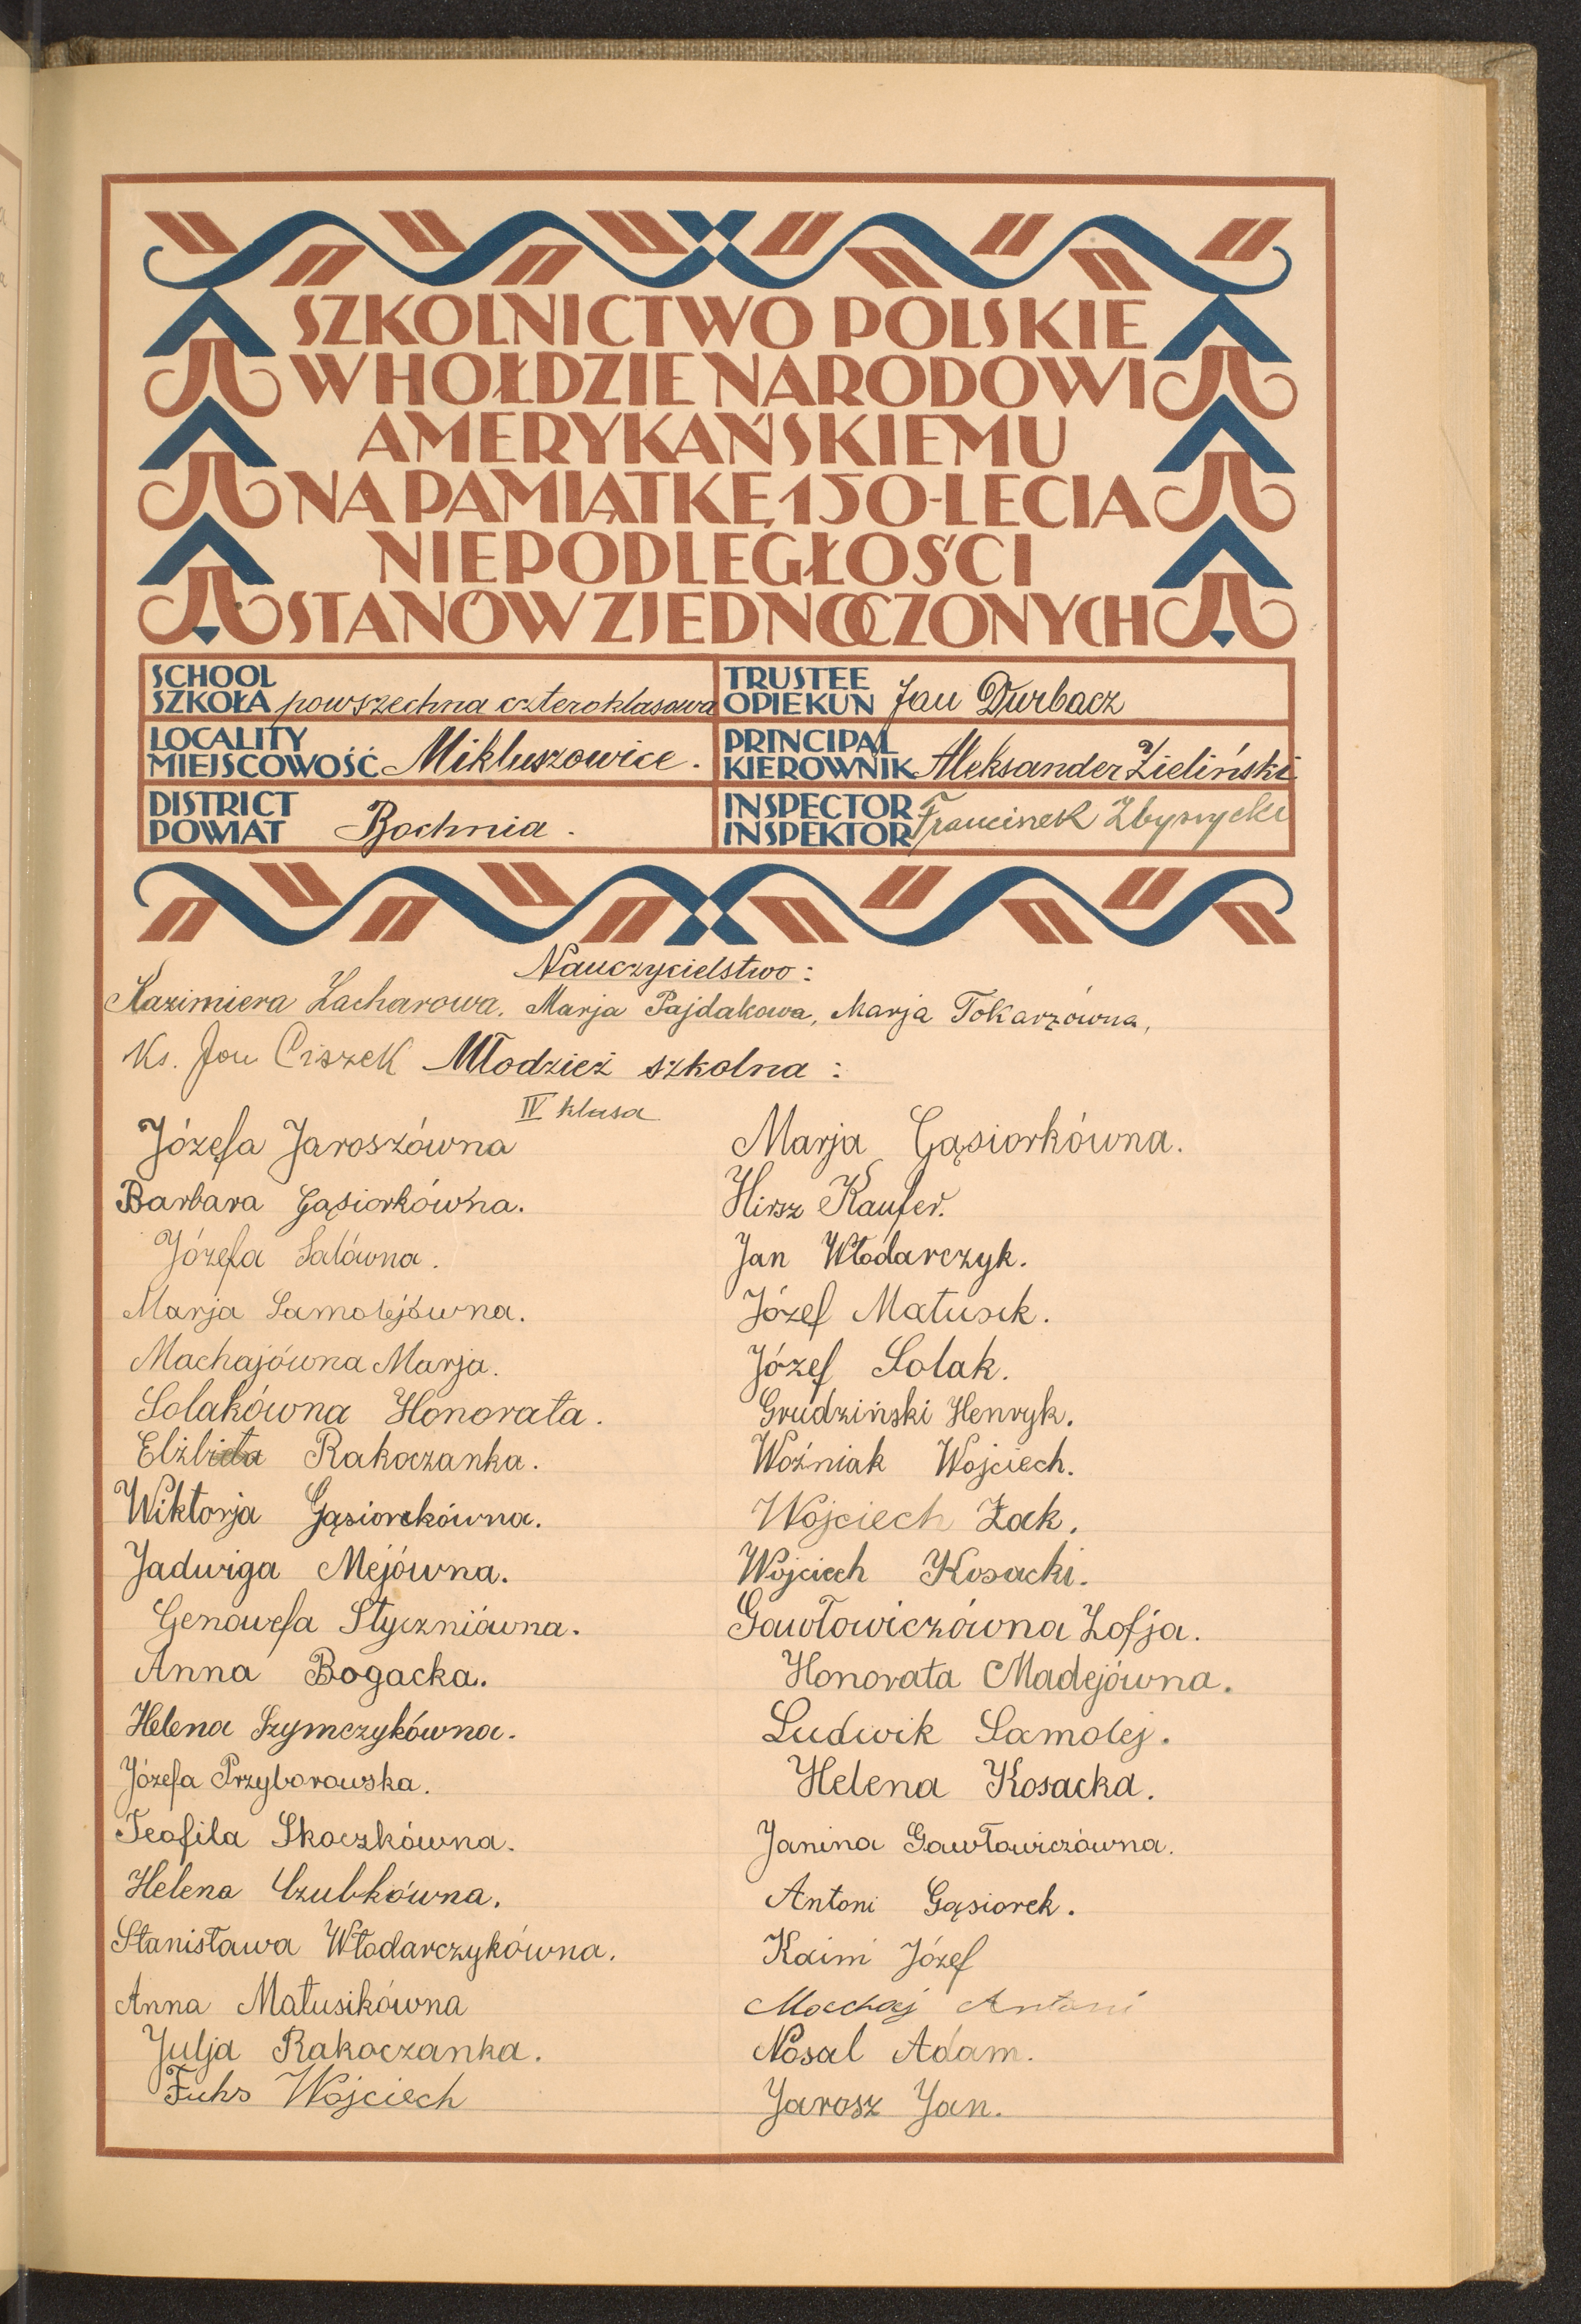 SZKOLNICTWO POLSKIE
W HOŁDZIE NARODOWI
AMERYKAŃSKIEMU
NA PAMIĄTKĘ 150-LECIA
NIEPODLEGŁOŚCI
STANÓW ZJEDNOCZONYCH
SCHOOL
SZKOŁA powszechna czteroklasowa
TRUSTEE
OPIEKUN Jan Durbacz
LOCALITY
MIEJSCOWOŚĆ Mikluszowice.
PRINCIPAL
KIEROWNIK Aleksander Zieliński
DISTRICT
POWIAT Bochnia.
INSPECTOR
INSPEKTOR Franciszek
Nauczycielstwo:
Kazimiera Zacharowa, Marja Pajdakowa, Marja Tokarzówna,
Ks. Jan Ciszek Młodzież szkolna:
IV klasa
Józefa Jaroszówna
Barbara Gąsiorkówna.
Józefa Salówna.
Marja Samolejówna.
Machajówna Marja.
Solakówna Honorata.
Elżbieta Rakoczanka.
Wiktorja Gąsiorekówna.
Jadwiga Mejówna.
Genowefa Styczniówna.
Anna Bogacka.
Helena Szymczykówna.
Józefa Przyborowska.
Teofila Skoczkówna.
Helena Czubkówna.
Stanisława Włodarczykówna.
Anna Matusikówna
Julja Rakoczanka.
Fuks Wojciech
Marja Gąsiorkówna.
Hirsz Kaufer.
Jan Włodarczyk.
Józef Matusik.
Józef Solak.
Grudziński Henryk.
Woźniak Wojciech.
Wojciech Żak.
Wojciech Kosacki.
Gawłowiczówna Zofja.
Honorata Madejówna.
Ludwik Samolej.
Helena Kosacka.
Janina Gawłowiczówna.
Antoni Gąsiorek.
Kaim Józef
Machaj Antoni
Nosal Adam.
Jarosz Jan.